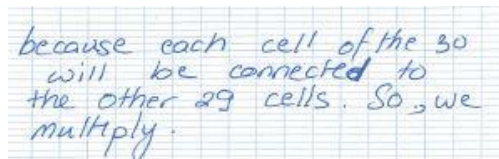 because each cell of the 30
will be connected to
the other 29 cells. So, we
multiply.